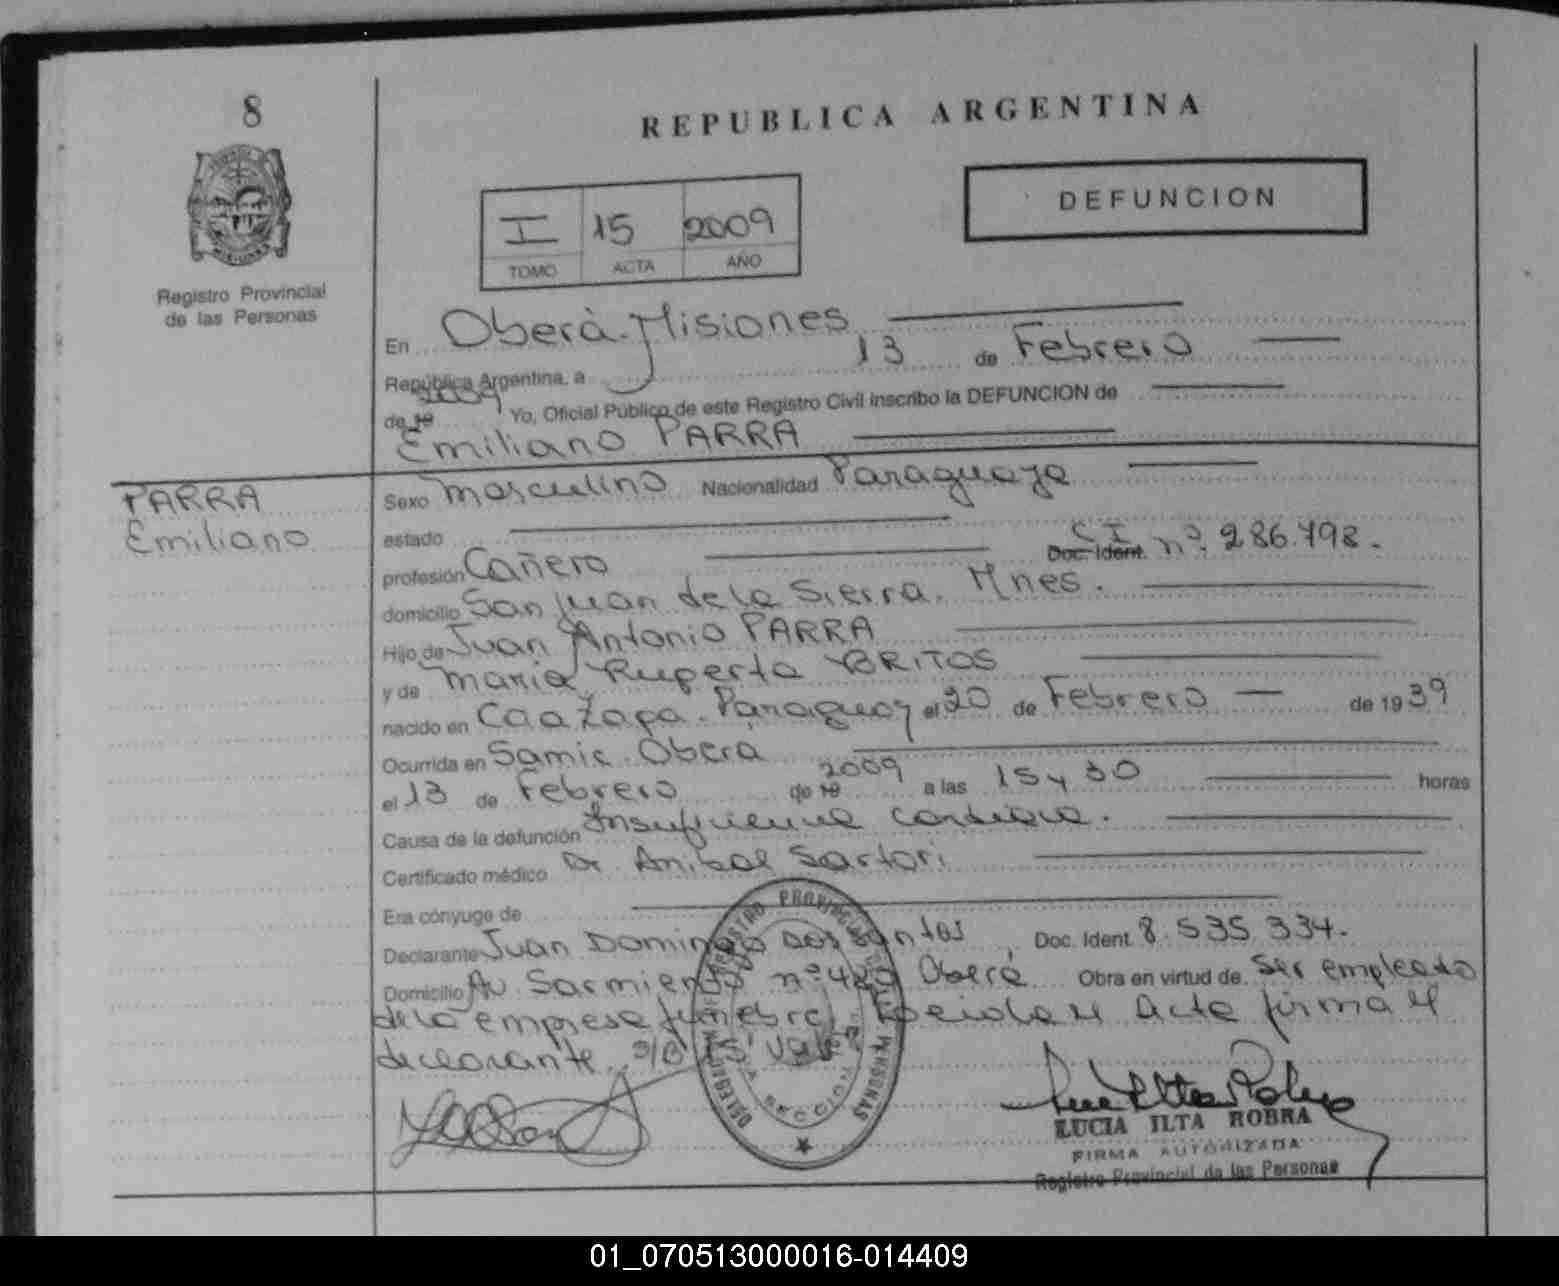 8
REPUBLICA ARGENTINA
DEFUNCION
I 15 2009
TOMO ACTA AÑO
Registro Provincial
de las Personas
En Oberà-Misiones
República Argentina, a 13 de Febrero
de 19 2009 Yo, Oficial Público de este Registro Civil inscribo la DEFUNCION de
Emiliano PARRA
PARRA
Emiliano
Sexo masculino Nacionalidad Paraguaya
estado
profesión Cañero Doc. Ident. C I nº. 286.798.
domicilio San Juan de la Sierra. Mnes.
Hijo de Juan Antonio PARRA
y de Maria Ruperta BRITOS
nacido en Caazapa. Paraguay el 20 de Febrero de 1939
Ocurrida en Samic. Oberà
el 13 de Febrero de 19 2009 a las 15 y 30 horas
Causa de la defunción Insuficiencia cardiaca.
Certificado médico Dr Anibal Sartori
Era cónyuge de
Declarante Juan Domingo Dos Santos Doc. Ident. 8.535.334.
Domicilio Av. Sarmiento nº Oberà Obra en virtud de ser empleado
de la empresa funebre. Leida el Acta firma el
declarante
REGISTRO PROVINCIAL DE LAS PERSONAS
SECCION
LUCIA ILTA ROBRA
FIRMA AUTORIZADA
Registro Provincial de las Personas
01_070513000016-014409